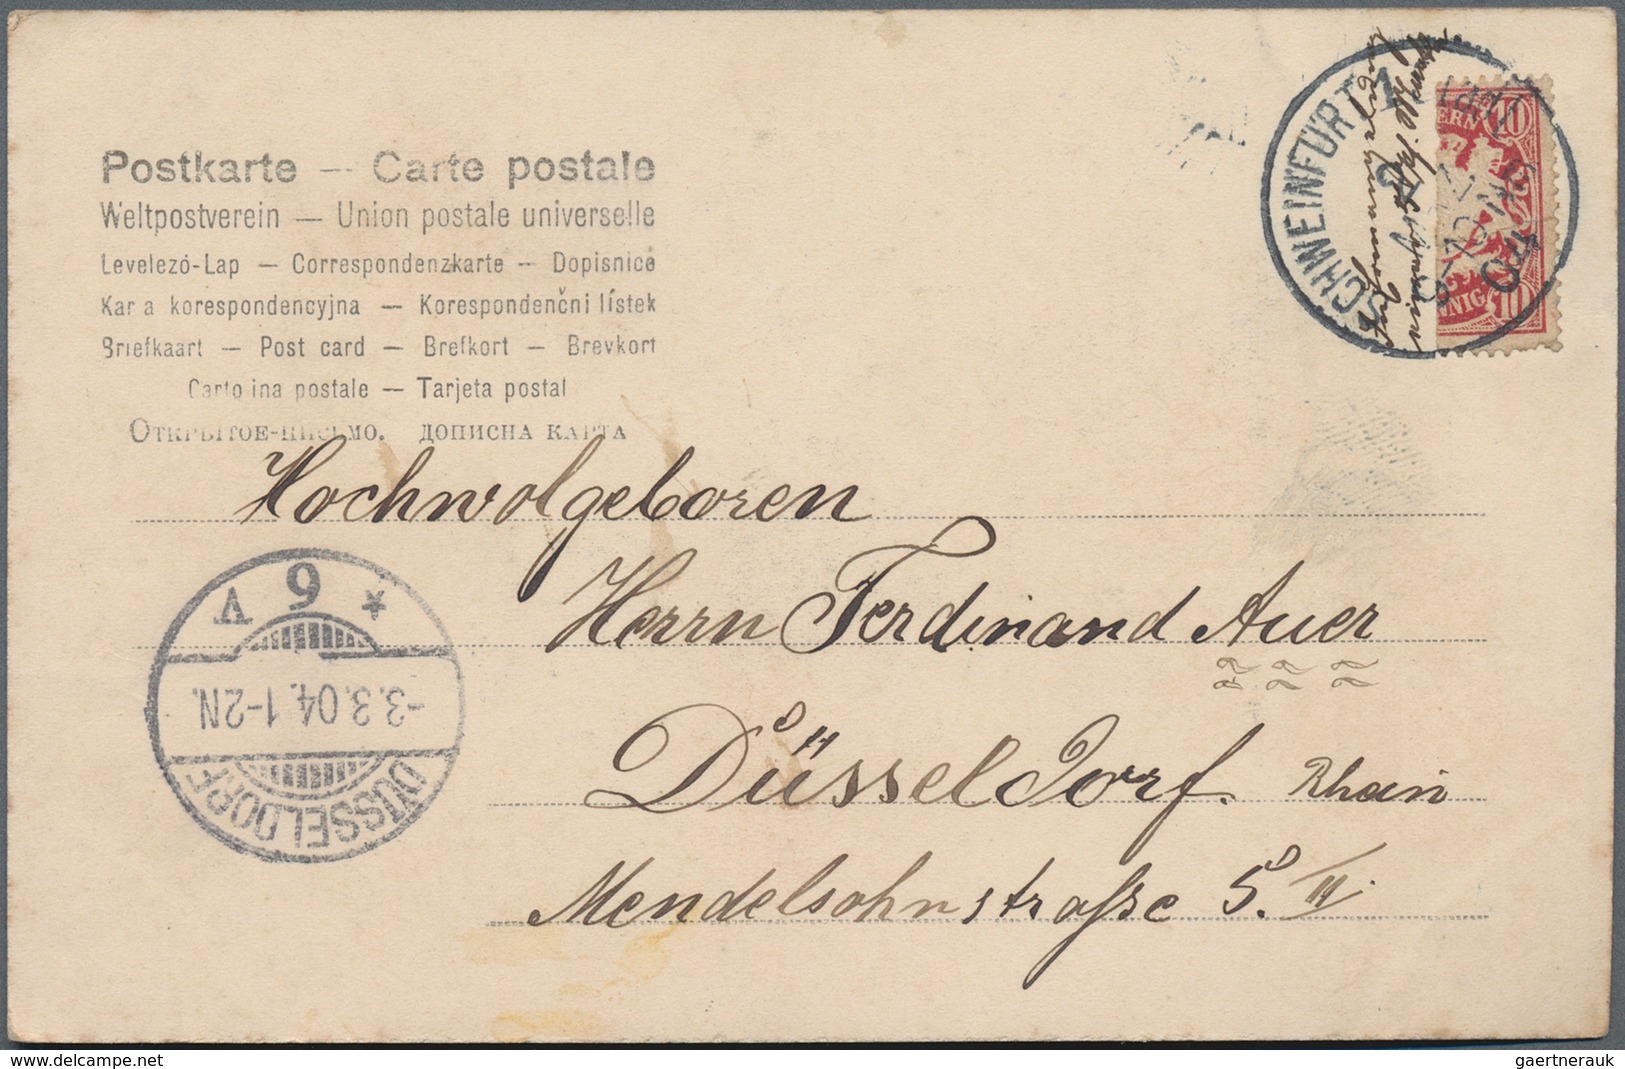 Postkarte — Carte postale
Weltpostverein — Union postale universelle
Levelező-Lap — Correspondenzkarte — Dopisnice
Kar a korespondencyjna — Korespondenčni lístek
Briefkaart — Post card — Brefkort — Brevkort
Carto ina postale — Tarjeta postal
Открытое-письмо. дописна карта
SCHWEINFURT
10
ERN
NNIG 10
Hochwolgeboren
Herrn Ferdinand Auer
Düsseldorf. Rhein
Mendelsohnstraße 5. III
* 6 V
-3.3.04. 1-2N.
DUSSELDORF
delcampe.net
gaertnerauk